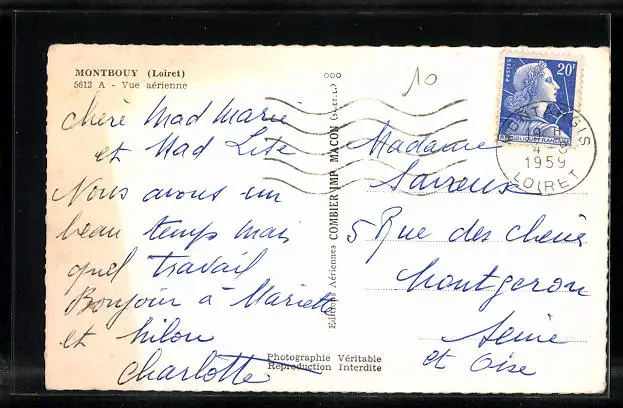 MONTBOUY (Loiret)
5612 A - Vue aérienne
chère Mad Marie
et Mad Lise
Nous avons un
beau temps mais
quel travail
Bonjour à Mariette
et Milou
Charlotte
Editions Aériennes COMBIER IMP. MACON (S.-et-L.)
Photographie Véritable
Reproduction Interdite
10
POSTES
20F
REPUBLIQUE FRANÇAISE
MONTARGIS
4-3
1959
LOIRET
Madame
Savoux
5 Rue des chênes
Montgeron
Seine
et Oise